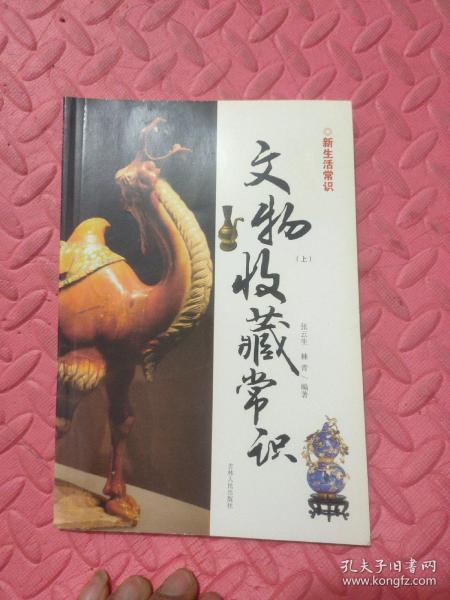 ◎新生活常识
文物收藏常识
（上）
张云生 林青 编著
吉林人民出版社
孔夫子旧书网
www.kongfz.com